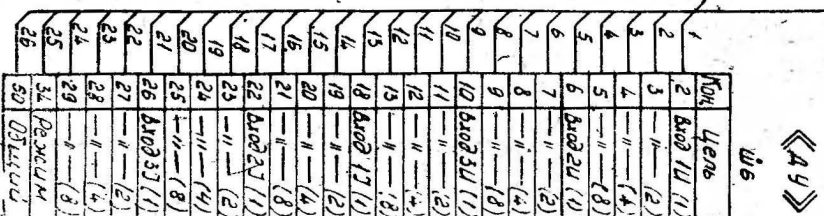 «АУ»
Ш6
Кон Цепь
1 2 Вход 1U (1)
2 3 —"— (2)
3 4 —"— (4)
4 5 —"— (8)
5 6 Вход2U (1)
6 7 —"— (2)
7 8 —"— (4)
8 9 —"— (8)
9 10 Вход3U (1)
10 11 —"— (2)
11 12 —"— (4)
12 13 —"— (8)
13 18 Вход 1J (1)
14 19 —"— (2)
15 20 —"— (4)
16 21 —"— (8)
17 22 Вход2J (1)
18 23 —"— (2)
19 24 —"— (4)
20 25 —"— (8)
21 26 Вход3J (1)
22 27 —"— (2)
23 28 —"— (4)
24 29 —"— (8)
25 34 Режим
26 50 Общий